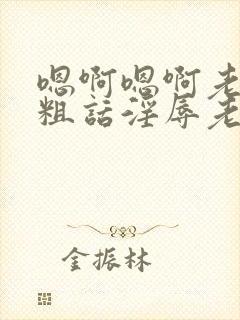 嗯啊嗯啊老
粗話淫辱老
金振林